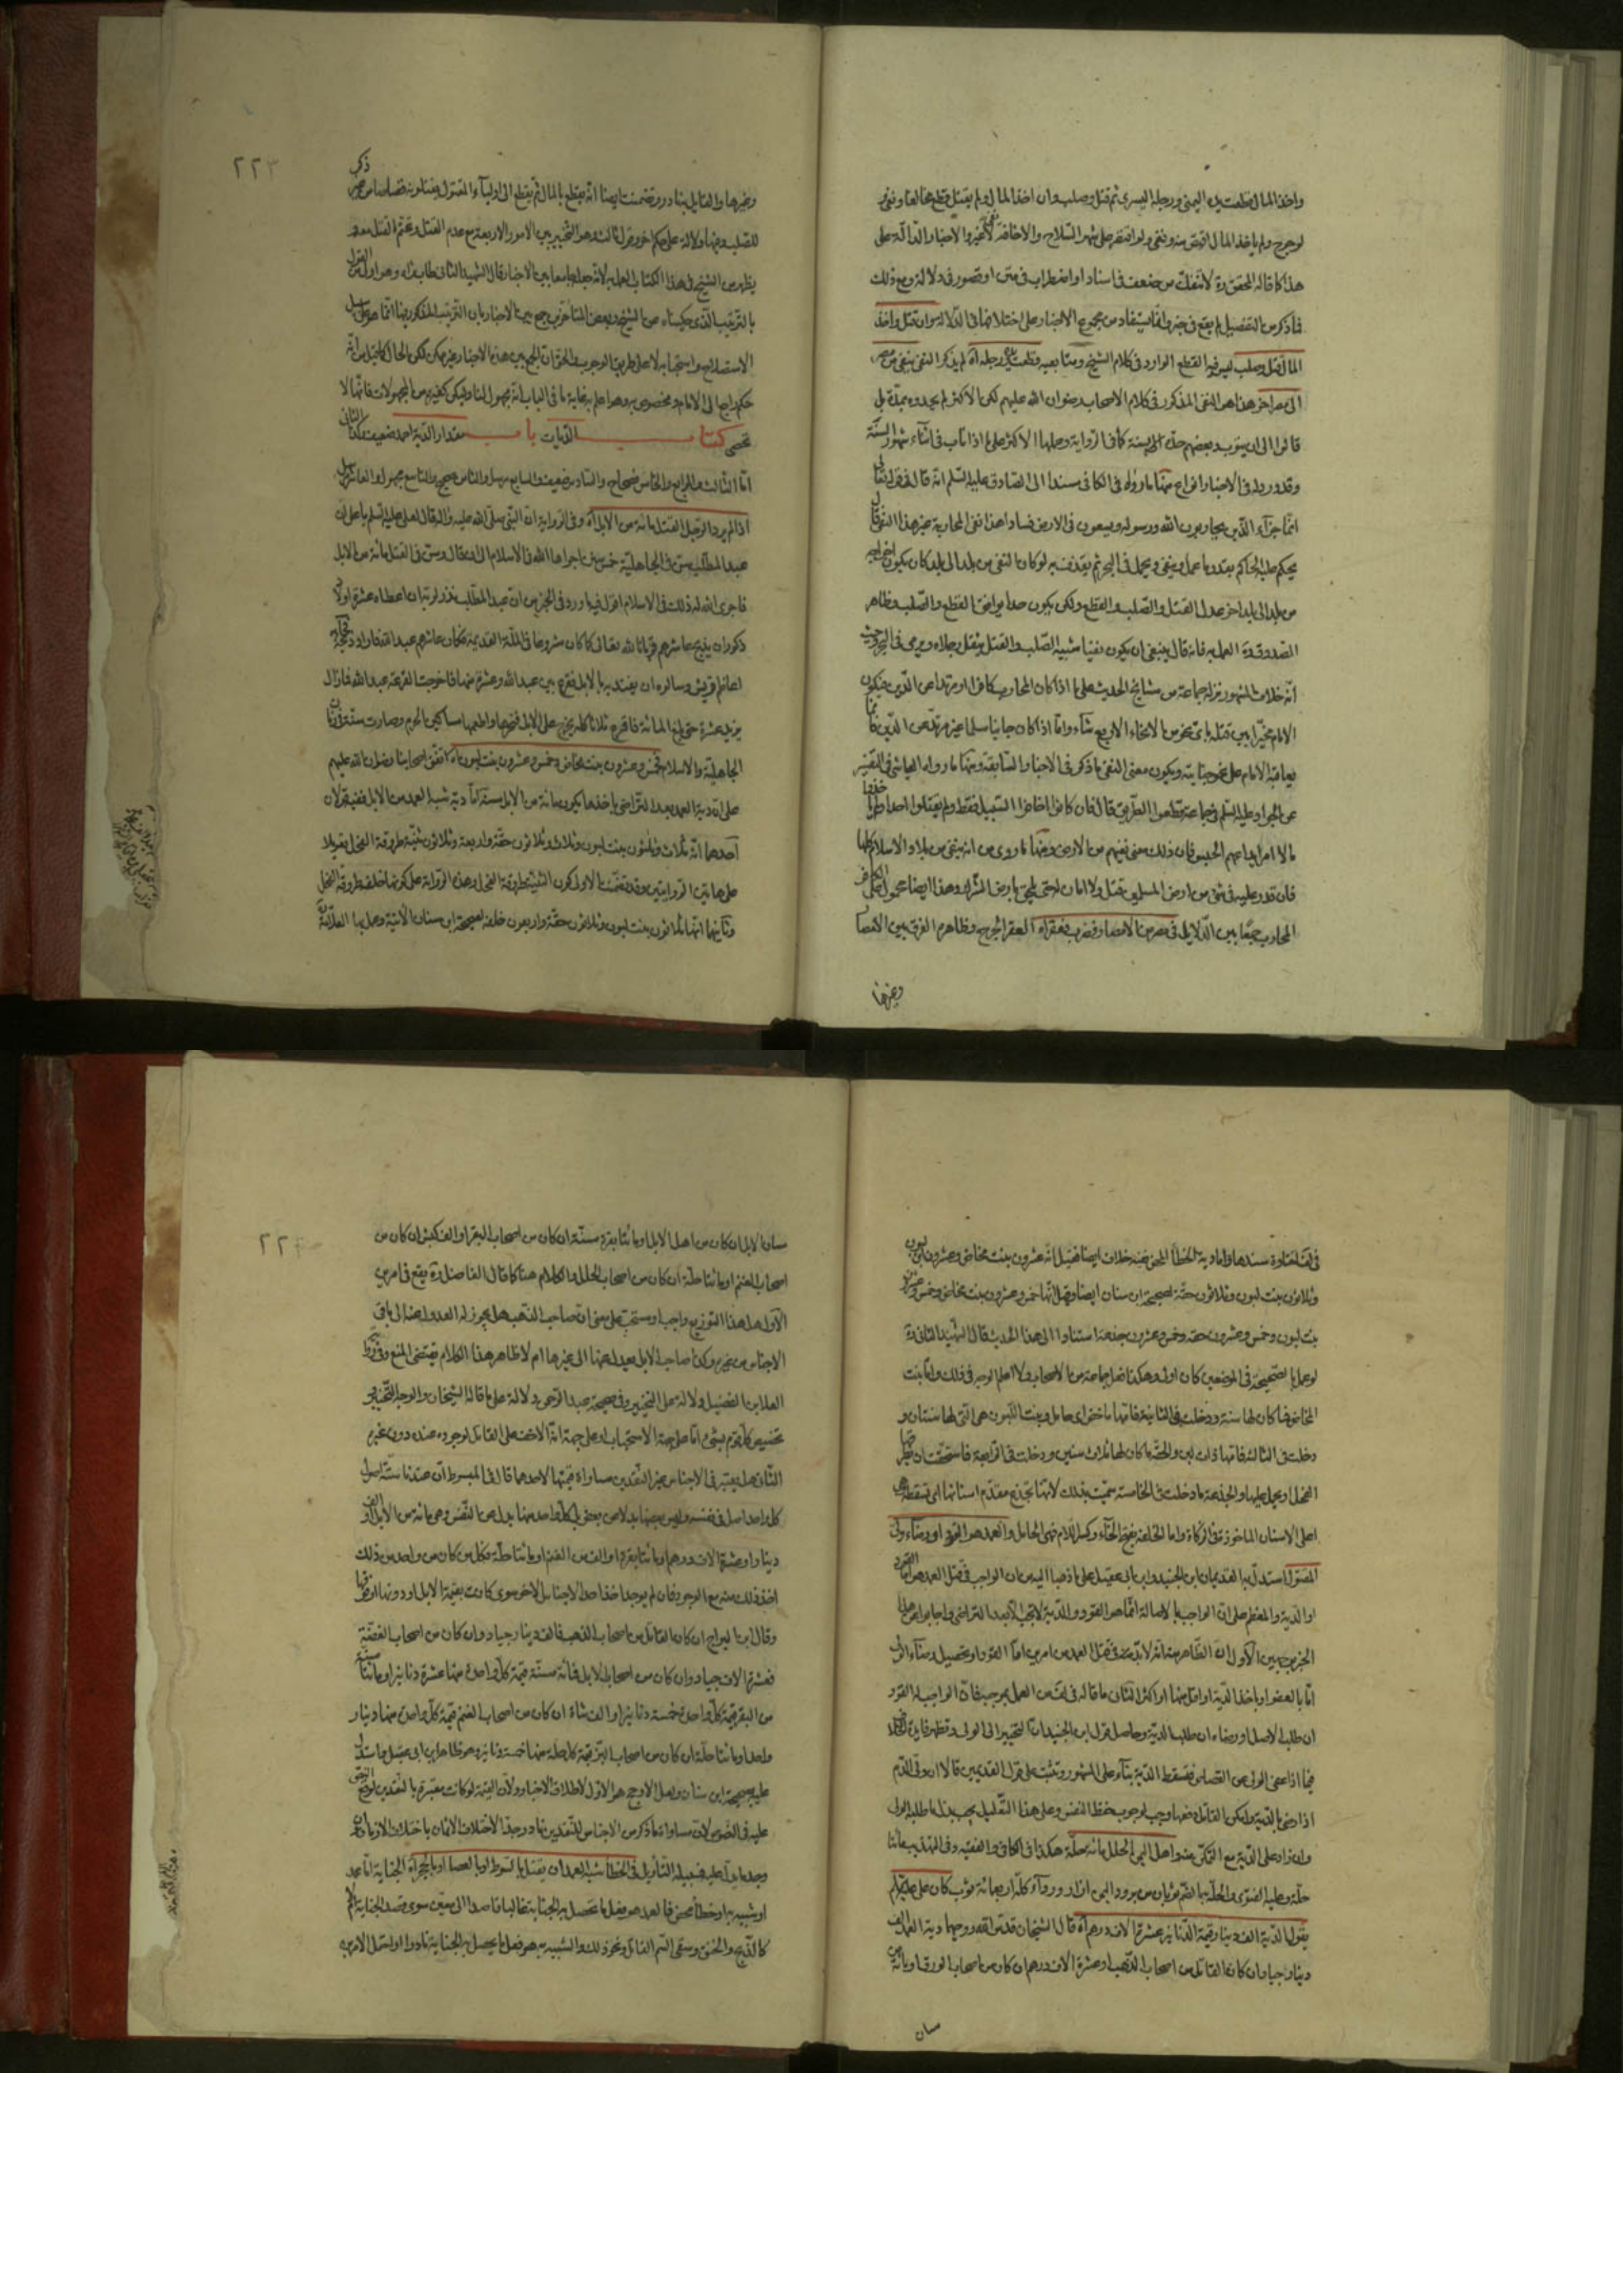 واخذ المال قطعت يده اليمنى ورجله اليسرى ثم قتل وصلب وان اخذ المال ولم يقتل قطع مخالفا ونفى
هذا كما قاله المحقق ره لا تنفك من ضعف فى اسناد او اضطراب فى متن او قصور فى دلالة ومع ذلك
فما ذكر من التفصيل لم يقع فى خبر وانما يستفاد من مجموع الاخبار على اختلافها فى الدلالة وان قتل واخذ
المال قتل وصلب ليس فيه القطع الوارد فى كلام الشيخ ومتابعيه
الى مصر اخر هذا هو النفى المذكور فى كلام الاصحاب رضوان الله عليهم لكن الاكثر لم يحدوه بمدة بل
قالوا الى ان يتوب وبعضهم حده الى سنة كما فى الرواية وحملها الاكثر على ما اذا تاب فى اثناء
وقد ورد له فى الاخبار انواع منها ما رواه فى الكافى مسندا الى الصادق عليه السلم انه قال فى قوله تعالى
انما جزاء الذين يحاربون الله ورسوله ويسعون فى الارض فسادا هذا نفى المحاربة غير هذا النفى قال
يحكم عليه الحاكم بقدر ما عمل وينفى ويحمل فى البحر ثم يقذف به لو كان النفى من بلد الى بلد كان يكون اخراجه
من بلد الى بلد اخر عدل القتل والصلب والقطع ولكن يكون حدا يوافق القطع والصلب وظاهر
الصدوق ره العمل به فانه قال ينبغى ان يكون نفيا شبيه الصلب والقتل يثقل رجلاه ويرمى فى البحر وحيث
انه خلاف المشهور نزله جماعة من مشايخ الحديث على ما اذا كان المحارب كافرا او مرتدا عن الدين فيكون
الامام مخيرا بين قتله باى نحو من الانحاء الاربع شاء واما اذا كان جانيا مسلما غير مرتد عن الدين فانما
يعاقبه الامام على نحو جنايته ويكون معنى النفى ما ذكر فى الاخبار السابقة ومنها ما رواه العياشى فى التفسير
عن الجواد عليه السلم فى جماعة قطعوا الطريق قال فان كانوا اخافوا السبيل فقط ولم يقتلوا احدا ولم ياخذوا
مالا امر بايداعهم الحبس فان ذلك معنى نفيهم من الارض ومنها ما روى من انه ينفى من بلاد الاسلام كلها
فان قدر عليه فى شىء من ارض المسلمين قتل ولا امان له حتى يلحق بارض الشرك وهذا ايضا محمول على الكافر
المحارب جمعا بين الدلايل فى مصر من الامصار فضرب فعقر اه العقر الجرح وظاهره الفرق بين الامصار
وغيرها
٢٢٣
ذكر
وغيرها والقايل به نادر وتضمنت ايضا انه يقطع بالمال ثم يقطع الى اولياء المقتول
يظهر من الشيخ فى هذا الكتاب العمل به لانه جعله جامعا بين الاخبار قال الشهيد الثانى طاب ثراه وهو اولى من القول
بالترتيب الذى حكيناه عن الشيخ وبعض المتاخرين جمع بين الاخبار بان الترتيب المذكور فيها انما هو على سبيل
الاستصلاح واستحبابه لا على طريق الوجوب والحق ان الجمع بين هذه الاخبار غير ممكن لكن الحال كما قيل من انه
حكم راجع الى الامام ومخصوص به وهو اعلم به غاية ما فى الباب انه مجهول لنا وليكن كغيره من المجهولات فانها لا
تحصى كتاب الديات باب مقدار الدية احمد ضعيف وكذا الثانى
اما الثالث والرابع والخامس فصحاح والسادس ضعيف والسابع مرسل والثامن صحيح والتاسع مجهول والعاشر مرسل
وفى الرواية ان النبى صلى الله عليه واله قال لعلى عليه السلم يا على ان
عبد المطلب سن فى الجاهلية خمس سنن اجراها الله فى الاسلام الى ان قال وسن فى القتل مائة من الابل
فاجرى الله له ذلك فى الاسلام اقول فيه ما ورد فى الخبر من ان عبد المطلب نذر لربه ان اعطاه عشرة اولاد
ذكور ان يذبح عاشرهم قربانا لله تعالى كما كان مشروعا فى الملة القديمة فكان عاشرهم عبد الله فاراد ذبحه فجاء
اعاظم قريش وسالوه ان يفتديه بالابل فقرع بين عبد الله وعشرة منها فاخرجت القرعة عبد الله فما زال
يزيد عشرة حتى بلغ المائة فاقرع ثلاثا كله يخرج على الابل فنحرها واطعمها مساكين الحرم وصارت سنة فى زمان
الجاهلية والاسلام فخمس وعشرون بنت مخاض وخمس وعشرون بنت لبون اه اتفق اصحابنا رضوان الله عليهم
على ان دية العمد بعد التراضى باخذها يكون مائة من الابل مسنة اما دية شبه العمد من الابل ففيه قولان
احدهما انه ثلاث وثلثون بنت لبون وثلاث وثلاثون حقة واربعة وثلاثون ثنية طروقة الفحل تعويلا
على هاتين الروايتين وقد تضمنت الاولى كون الثنية طروقة الفحل وهذه الرواية على كونها خلفة طروقة الفحل
وثانيهما انها ثلاثون بنت لبون وثلاثون حقة واربعون خلفة لصحيحة ابن سنان الاتية وعمل بها العلامة
واما دية الخطأ المحض ففيه خلاف ايضا فقيل انه عشرون بنت مخاض وعشرون ابن لبون
وثلاثون بنت لبون وثلاثون حقة لصحيحة ابن سنان ايضا وقيل انها خمس وعشرون بنت مخاض وخمس وعشرون
بنت لبون وخمس وعشرون حقة وخمس وعشرون جذعة استنادا الى هذا الحديث قال الشهيد الثانى ره
لو عمل بالصحيحة فى الموضعين كان اولى وهكذا فعل جماعة من الاصحاب ولا اعلم الوجه فى ذلك واما بنت
المخاض فما كان لها سنة ودخلت فى الثانية فامها ماخض اى حامل وبنت اللبون هى التى لها سنتان و
دخلت فى الثالثة فامها ذات لبن والحقة ما كان لها ثلاث سنين ودخلت فى الرابعة فاستحقت ان يطرقها
الفحل او يحمل عليها والجذعة ما دخلت فى الخامسة سميت بذلك لانها تجذع مقدم اسنانها اى تسقطه وهى
اعلى الاسنان الماخوذة فى الزكاة واما الخلفة بفتح الخاء وكسر اللام فهى الحامل والعمد هو القود او رضاء ولى
المقتول استدل به القديمان ابن الجنيد وابن ابى عقيل على ما ذهبا اليه من ان الواجب فى قتل العمد هو اما القود
او الدية والمعظم على ان الواجب بالاصالة انما هو القود والدية لا تجب الا بعد التراضى واجابوا عن هذا
الخبر بوجهين الاول ان الظاهر منه انه لا بد فى قتل العمد من امرين اما القود او تحصيل رضاء الولى
اما بالعفو او باخذ الدية او اقل منها او اكثر الثانى ما قاله فى لف من العمل بموجبه فان الواجب له القود
ان طلب الاصل او رضاءه ان طلب الدية وحاصل قول ابن الجنيد ان التخيير الى الولى وتظهر فايدة الخلاف
فيما اذا عفى الولى عن القصاص فتسقط الدية بناء على المشهور وتثبت على قول القديمين قالا ان ولى الدم
اذا رضى بالدية وامكن القاتل دفعها وجب لوجوب حفظ النفس وعلى هذا التعليل يجب بذل ما طلبه الولى
وان زاد على الدية مع التمكن منه واهل اليمن الحلل مائة حلة هكذا فى الكافى والفقيه وفى التهذيب مائتا
يقول الدية الف دينار وقيمة الدنانير عشرة الاف درهم اه قال الشيخان قدس الله روحهما دية العمد الف
دينار جياد ان كان القاتل من اصحاب الذهب او عشرة الاف درهم ان كان من اصحاب الورق او مائة
مسان
مسان الابل ان كان من اهل الابل او مائتا بقرة مسنة ان كان من اصحاب البقر او الف كبش ان كان من
اصحاب الغنم او مائتا حلة ان كان من اصحاب الحلل والكلام هنا كما قال الفاضل ره يقع فى امرين
الاول هل هذا التوزيع واجب او مستحب على معنى ان صاحب الذهب هل يجوز له العدول عنه الى باقى
الاجناس من غيره وكذا صاحب الابل يعدل عنها الى غيرها ام لا ظاهر هذا الكلام يقتضى المنع
تخصيص كل قوم بشىء اما على جهة الاستحباب او على جهة انه الاخف على القاتل لوجوده عنده دون غيره
الثانى هل يعتبر فى الاجناس غير النقدين مساواة قيمتها لاحدهما قال فى المبسوط ان عندنا ستة اصول
كل واحد اصل فى نفسه وليس بعضها بدلا عن بعض بل كل واحد منها بدل عن النفس وهى مائة من الابل او الف
دينار او عشرة الاف درهم او مائتا بقرة او الف من الغنم او مائتا حلة وكل من كان من واحد من ذلك
اخذ ذلك منه مع الوجود فان لم يوجد اخذ احد الاجناس الاخر سوى كانت بقيمة الابل او دونها او فوقها
وقال ابن البراج ان كان القاتل من اصحاب الذهب فالف دينار جياد وان كان من اصحاب الفضة
فعشرة الاف جياد وان كان من اصحاب الابل فمائة مسنة قيمة كل واحدة منها عشرة دنانير او مائتا مسنة
من البقر قيمة كل واحدة خمسة دنانير او الف شاة ان كان من اصحاب الغنم قيمة كل واحدة منها دينار
واحد او مائتا حلة ان كان من اصحاب البز قيمة كل حلة منها خمسة دنانير وهو ظاهر ابن ابى عقيل واستدل
عليه بصحيحة ابن سنان ولعل الاوجه هو الاول لاطلاق الاخبار ولان القيمة لو كانت معتبرة بالنقدين لوقع
وجه ما دل عليه فسبيله التأويل فى الخطأ شبه العمد ان يقتل بالسوط او بالعصا او بالحجر اه الجناية اما عمد
او شبيه به او خطأ محض فالعمد هو فعل ما تحصل به الجناية غالبا قاصدا
كالذبح والخنق وسقى السم القاتل ونحو ذلك والشبيه به هو فعل ما يحصل به الجناية نادرا